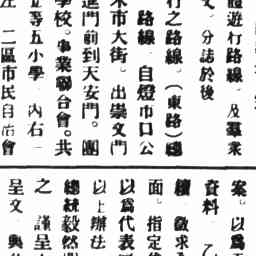 體遊行路線。及羣衆
文。分誌於後
行之路線。（東路）總
路線。自燈市口公
米市大街。出崇文門
進門前到天安門。團
學校。事業聯合會。共
立等五小學。內右一
左 二區市民自治會
案。以爲
資料。乙
徵求
面。指定
以爲代表
以上辦法
總統毅然
之 謹呈
呈文。